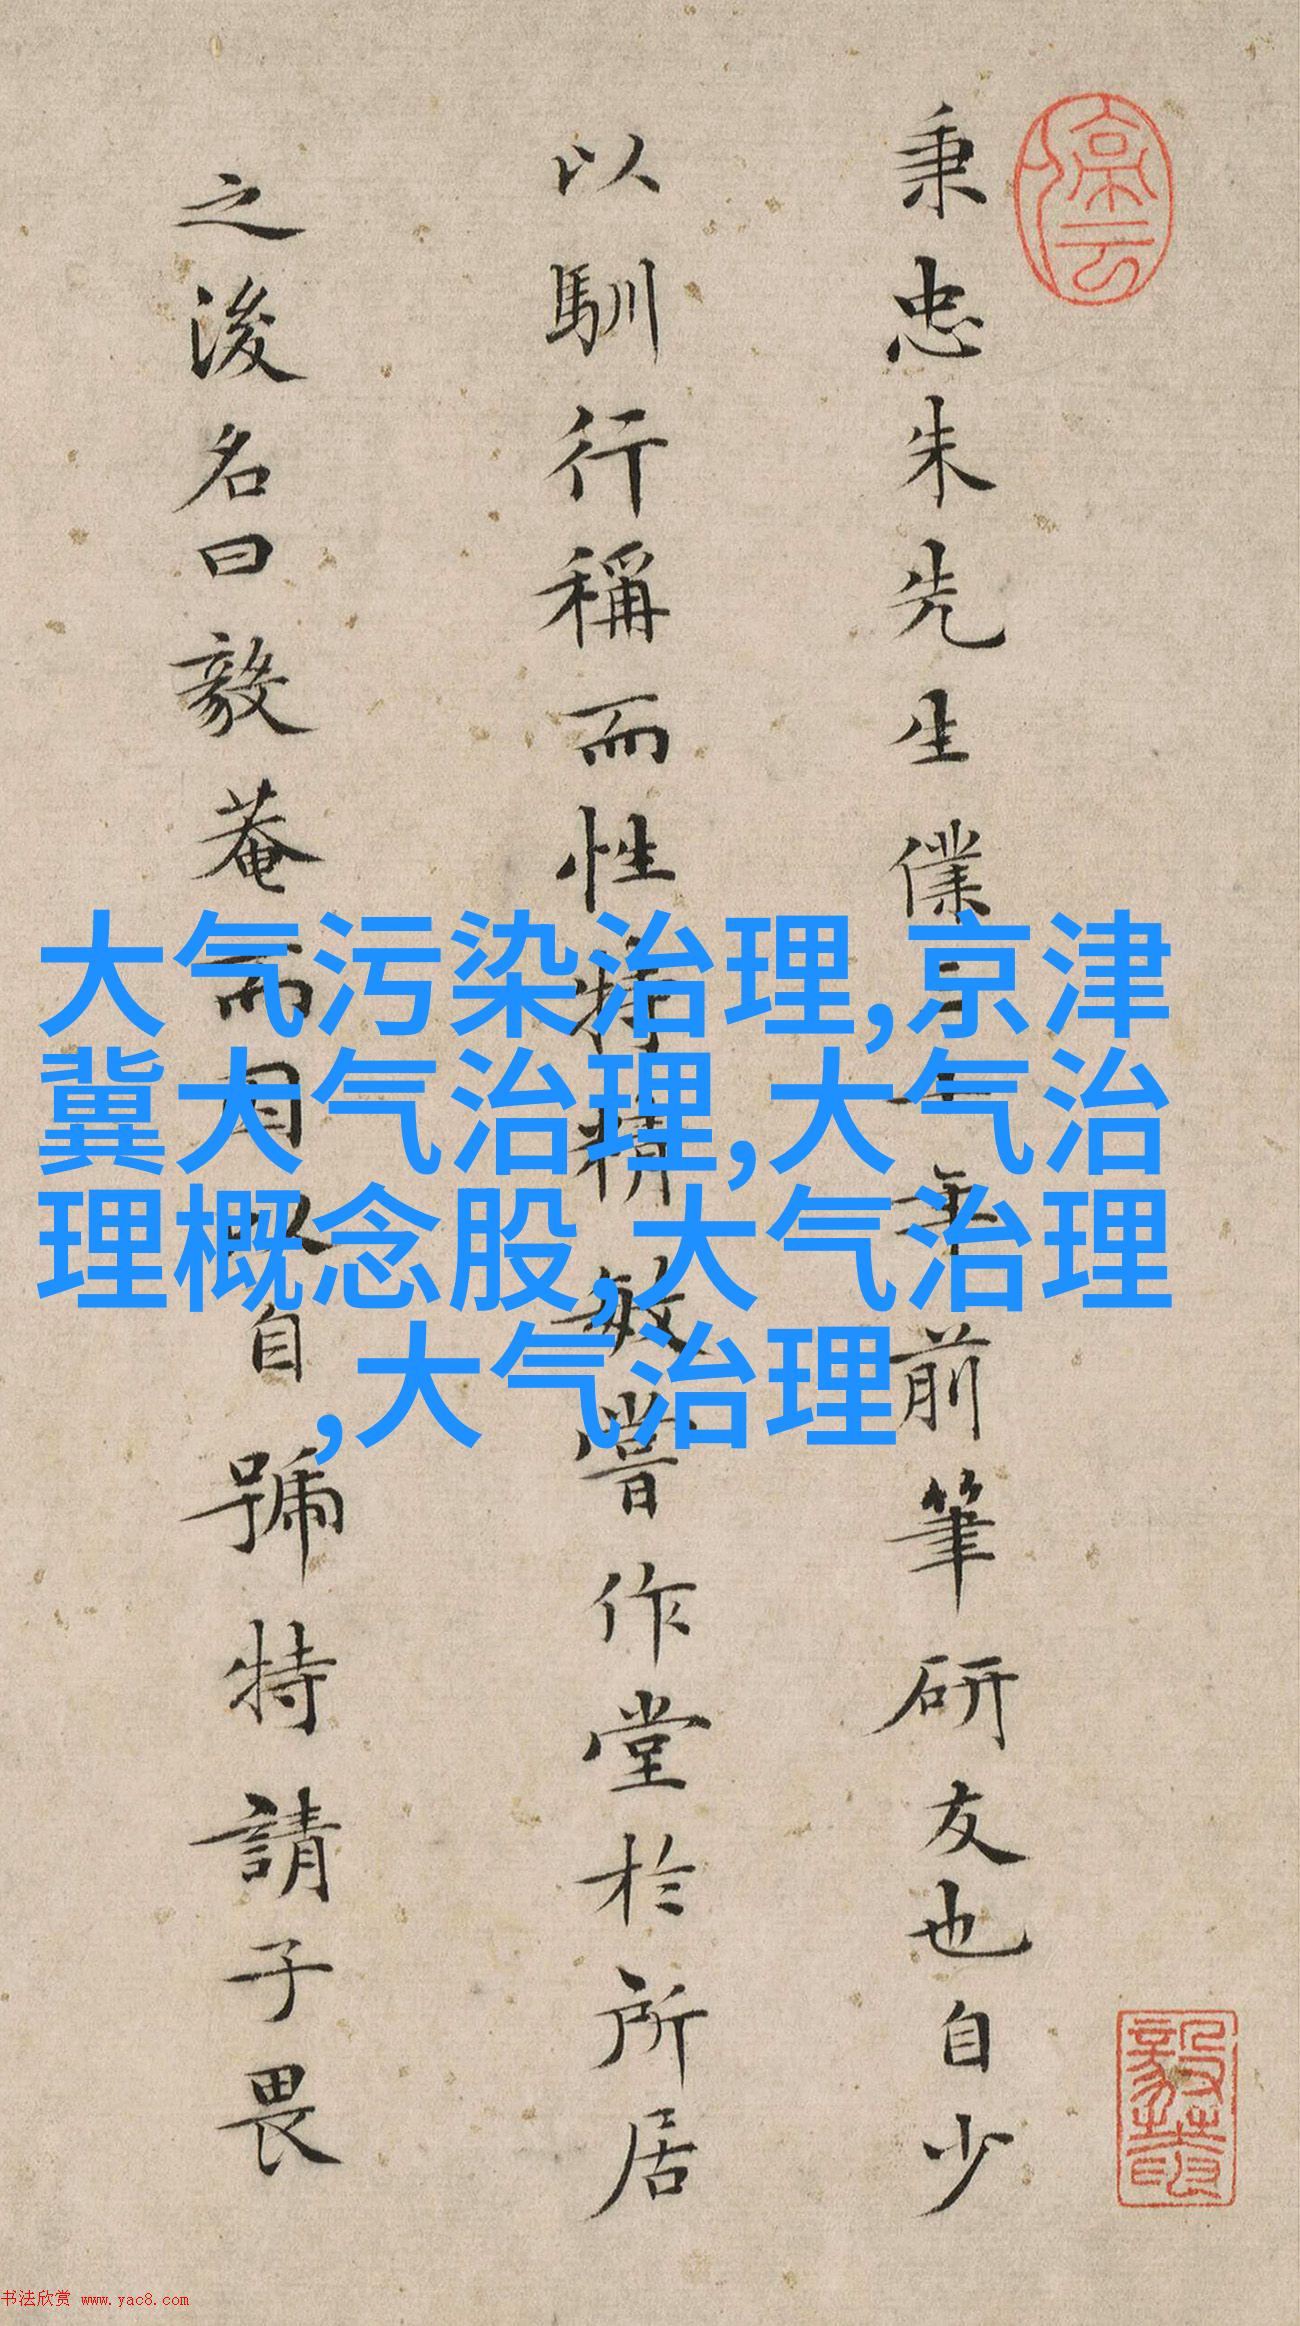 秉忠朱先生僕三十年前筆研友也自少
以馴行稱而性特精敏嘗作堂於所居
之後名曰毅菴而因以自號特請子畏
大气污染治理,京津
冀大气治理,大气治
理概念股,大气治理
,大气治理
书法欣赏 www.yac8.com